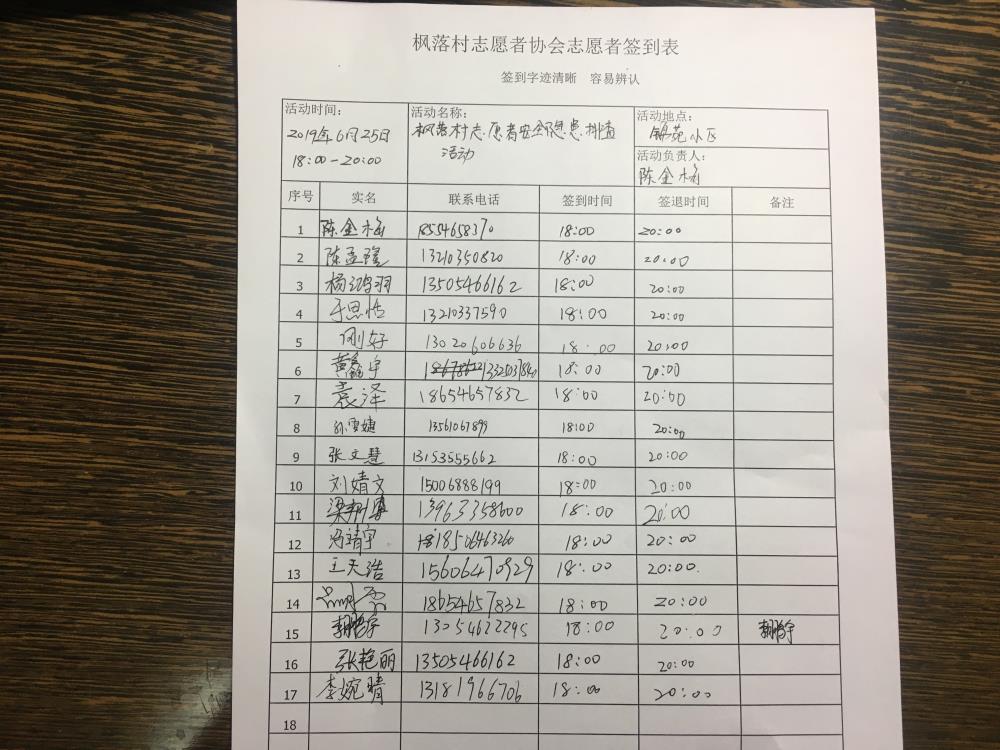 枫落村志愿者协会志愿者签到表
签到字迹清晰 容易辨认
活动时间： 活动名称： 活动地点：
2019年6月25日 枫落村志愿者安全隐患排查 锦苑小区
18:00-20:00 活动 活动负责人：
陈金梅
序号 实名 联系电话 签到时间 签退时间 备注
1 陈金梅 18554658370 18:00 20:00
2 陈孟隆 13210350820 18:00 20:00
3 杨鸿羽 13505466162 18:00 20:00
4 于思恬 13210337590 18:00 20:00
5 刚好 13020606636 18:00 20:00
6 黄鑫宇 13325037840 18:00 20:00
7 袁泽 18654657832 18:00 20:00
8 孙雪婕 13561067899 18:00 20:00
9 张文慧 13153555662 18:00 20:00
10 刘婧文 15006888199 18:00 20:00
11 13963358600 18:00 20:00
12 靖宇 18506463260 18:00 20:00
13 王天浩 15606470929 18:00 20:00
14 18654657832 18:00 20:00
15 13054622295 18:00 20:00
16 张艳丽 13505466162 18:00 20:00
17 李婉晴 13181966706 18:00 20:00
18